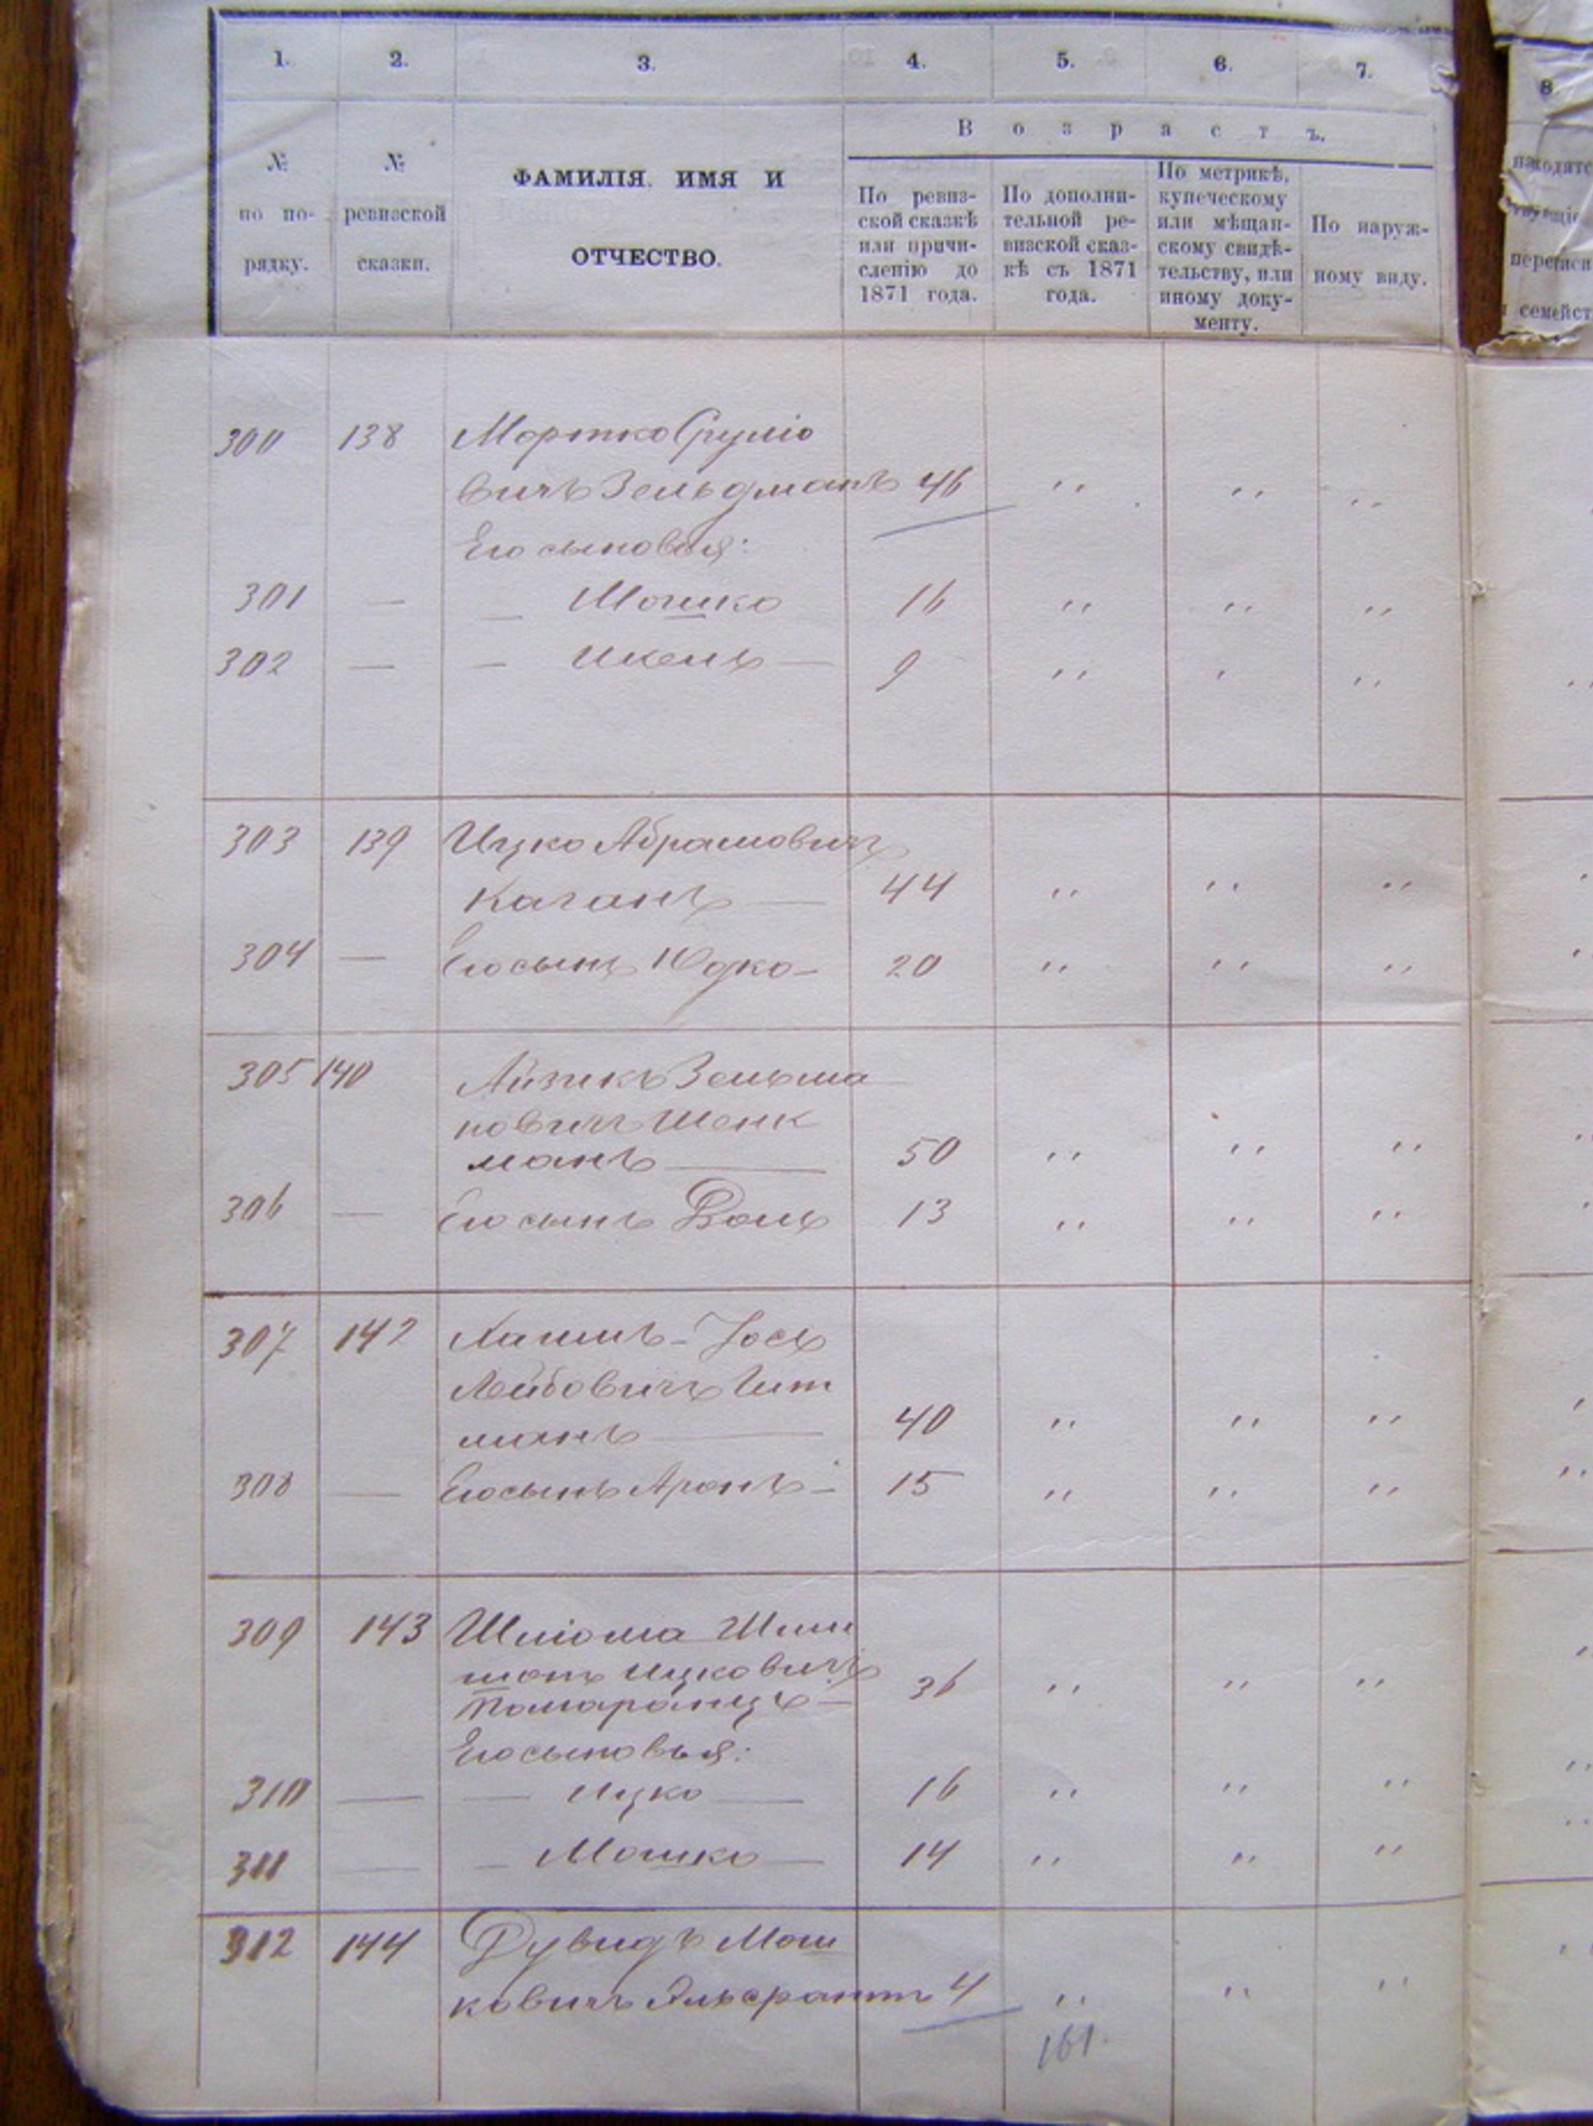 1. 2. 3. 4. 5. 6. 7.
8
№ по по-рядку.
№ ревизской сказки.
ФАМИЛІЯ. ИМЯ И
ОТЧЕСТВО.
В о з р а с т ъ.
По ревиз-
ской сказкѣ
или причи-
сленію до
1871 года.
По дополни-
тельной ре-
визской сказ-
кѣ съ 1871
года.
По метрикѣ,
купеческому
или мѣщан-
скому свидѣ-
тельству, или
иному доку-
менту.
По наруж-
ному виду.
находятс
переписи
семейст
300 138 Мортко Сруліо
вичъ Зельдманъ 46 ,, ,, ,,
Его сыновья:
301 — — Мошко 16 ,, ,, ,,
302 — — Икель — 9 ,, , ,,
303 139 Ицко Абрамовичъ
Каганъ — 44 ,, ,, ,,
304 — Его сынъ Юдко — 20 ,, ,, ,,
305 140 Айзикъ Зельма
новичъ Шенк
манъ — 50 ,, ,, ,,
306 — Его сынъ Волъ 13 ,, ,, ,,
307 142 Хаимъ-Іось
Лейбовичъ Гит
манъ — 40 ,, ,, ,,
308 — Его сынъ Аронъ — 15 ,, ,, ,,
309 143 Шліома
Ицковичъ 36 ,, ,, ,,
Помаранцъ —
Его сыновья:
310 — — Ицко — 16 ,, ,, ,,
311 — — Мошко — 14 ,, ,, ,,
312 144 Дувидъ Мош
ковичъ 4 ,, ,, ,,
161.